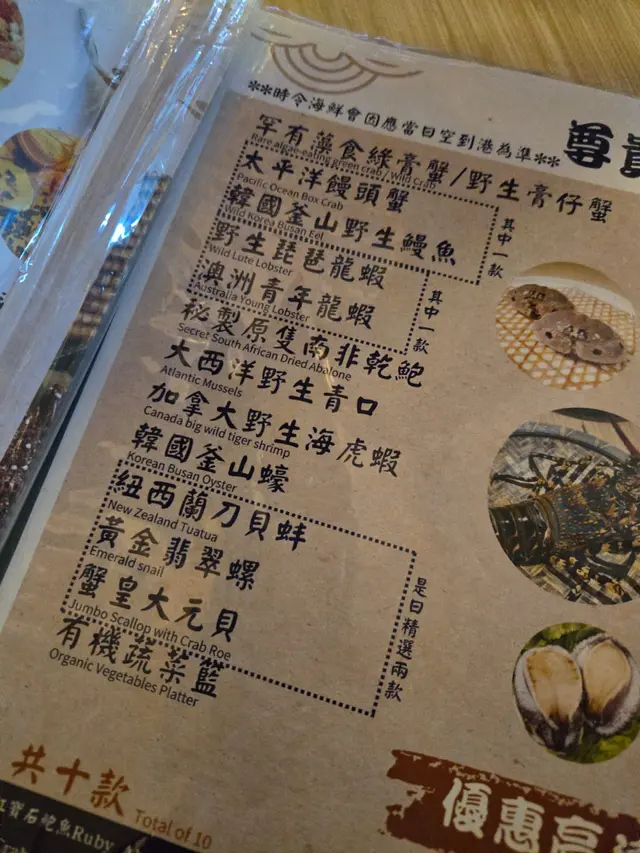 **時令海鮮會因應當日空到港為準**
尊貴
罕有藻食綠膏蟹/野生膏仔蟹
Rare algae-eating green crab / Wild Crab
太平洋饅頭蟹
Pacific Ocean Box Crab
韓國釜山野生鰻魚
Wild Korea Busan Eel
其中一款
野生琵琶龍蝦
Wild Lute Lobster
澳洲青年龍蝦
Australia Young Lobster
其中一款
秘製原隻南非乾鮑
Secret South African Dried Abalone
大西洋野生青口
Atlantic Mussels
加拿大野生海虎蝦
Canada big wild tiger shrimp
韓國釜山蠔
Korean Busan Oyster
紐西蘭刀貝蚌
New Zealand Tuatua
黃金翡翠螺
Emerald snail
蟹皇大元貝
Jumbo Scallop with Crab Roe
是日精選兩款
有機蔬菜籃
Organic Vegetables Platter
共十款 Total of 10
紅寶石鮑魚Ruby
優惠高